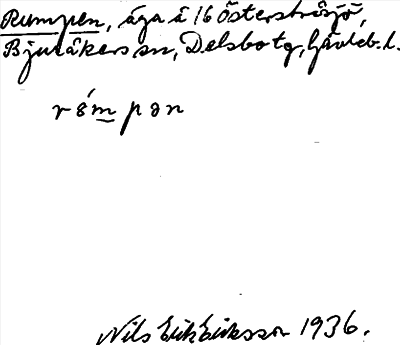 Rumpen, äga å 16 Österstråsjö,
Bjuråkers sn, Delsbo tg, Gävleb. l.
rómpən
Nils Erik Eriksson 1936.